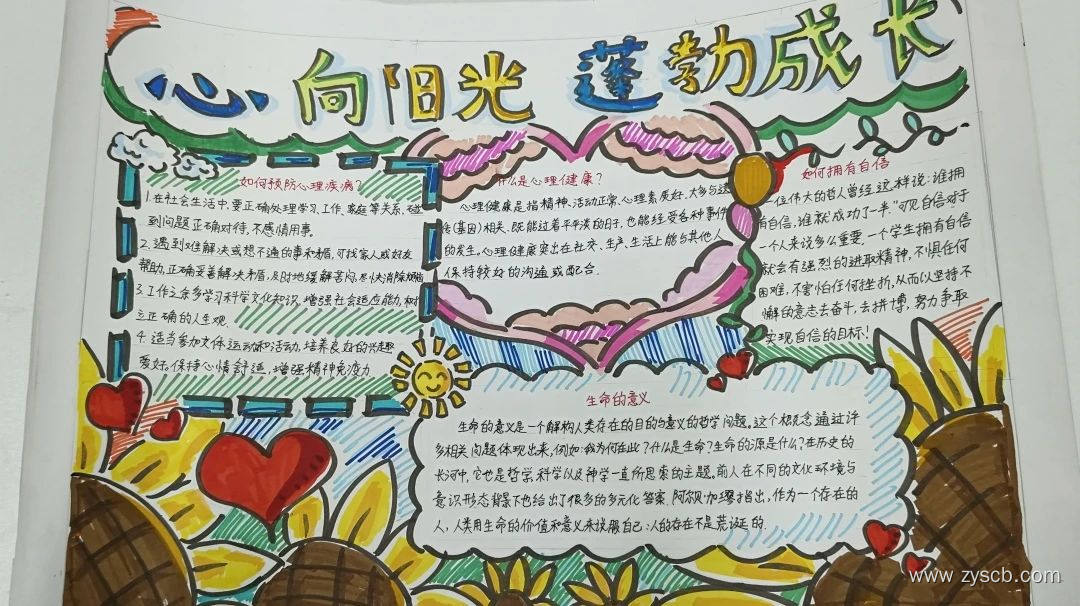 心向阳光 蓬勃成长
如何预防心理疾病?
1.在社会生活中,要正确处理学习、工作、家庭等关系,碰
到问题正确对待,不感情用事。
2.遇到难解决或想不通的事和矛盾,可找家人或好友
帮助,正确妥善解决矛盾,及时地缓解苦闷,尽快消除烦恼
3.工作之余多学习科学文化知识,增强社会适应能力,和树
立正确的人生观.
4.适当参加文体运动和活动,培养良好的兴趣
爱好,保持心情舒适,增强精神免疫力
什么是心理健康?
心理健康是指精神、活动正常、心理素质好.大多与这
传(基因)相关,既能过着平平淡的日子,也能经受各种事件
的发生,心理健康突出在社交、生产、生活上能与其他人
保持较好的沟通或配合.
如何拥有自信
一位伟大的哲人曾经这样说:谁拥
有自信,谁就成功了一半."可见自信对于
一个人来说多么重要.一个学生拥有自信
就会有强烈的进取精神,不惧任何
困难,不害怕任何挫折,从而以坚持不
懈的意志去奋斗,去拼搏,努力争取
实现自信的目标!
生命的意义
生命的意义是一个解构人类存在的目的与意义的哲学问题。这个概念通过许
多相关问题体现出来,例如:我为何在此?什么是生命?生命的源是什么?在历史的
长河中,它也是哲学,科学以及神学一直所思索的主题。前人在不同的文化环境与
意识形态背景下也给出了很多的多元化答案.阿尔贝·加缪指出,作为一个存在的
人,人类用生命的价值和意义来说服自己:人的存在不是荒诞的.
www.zyscb.com